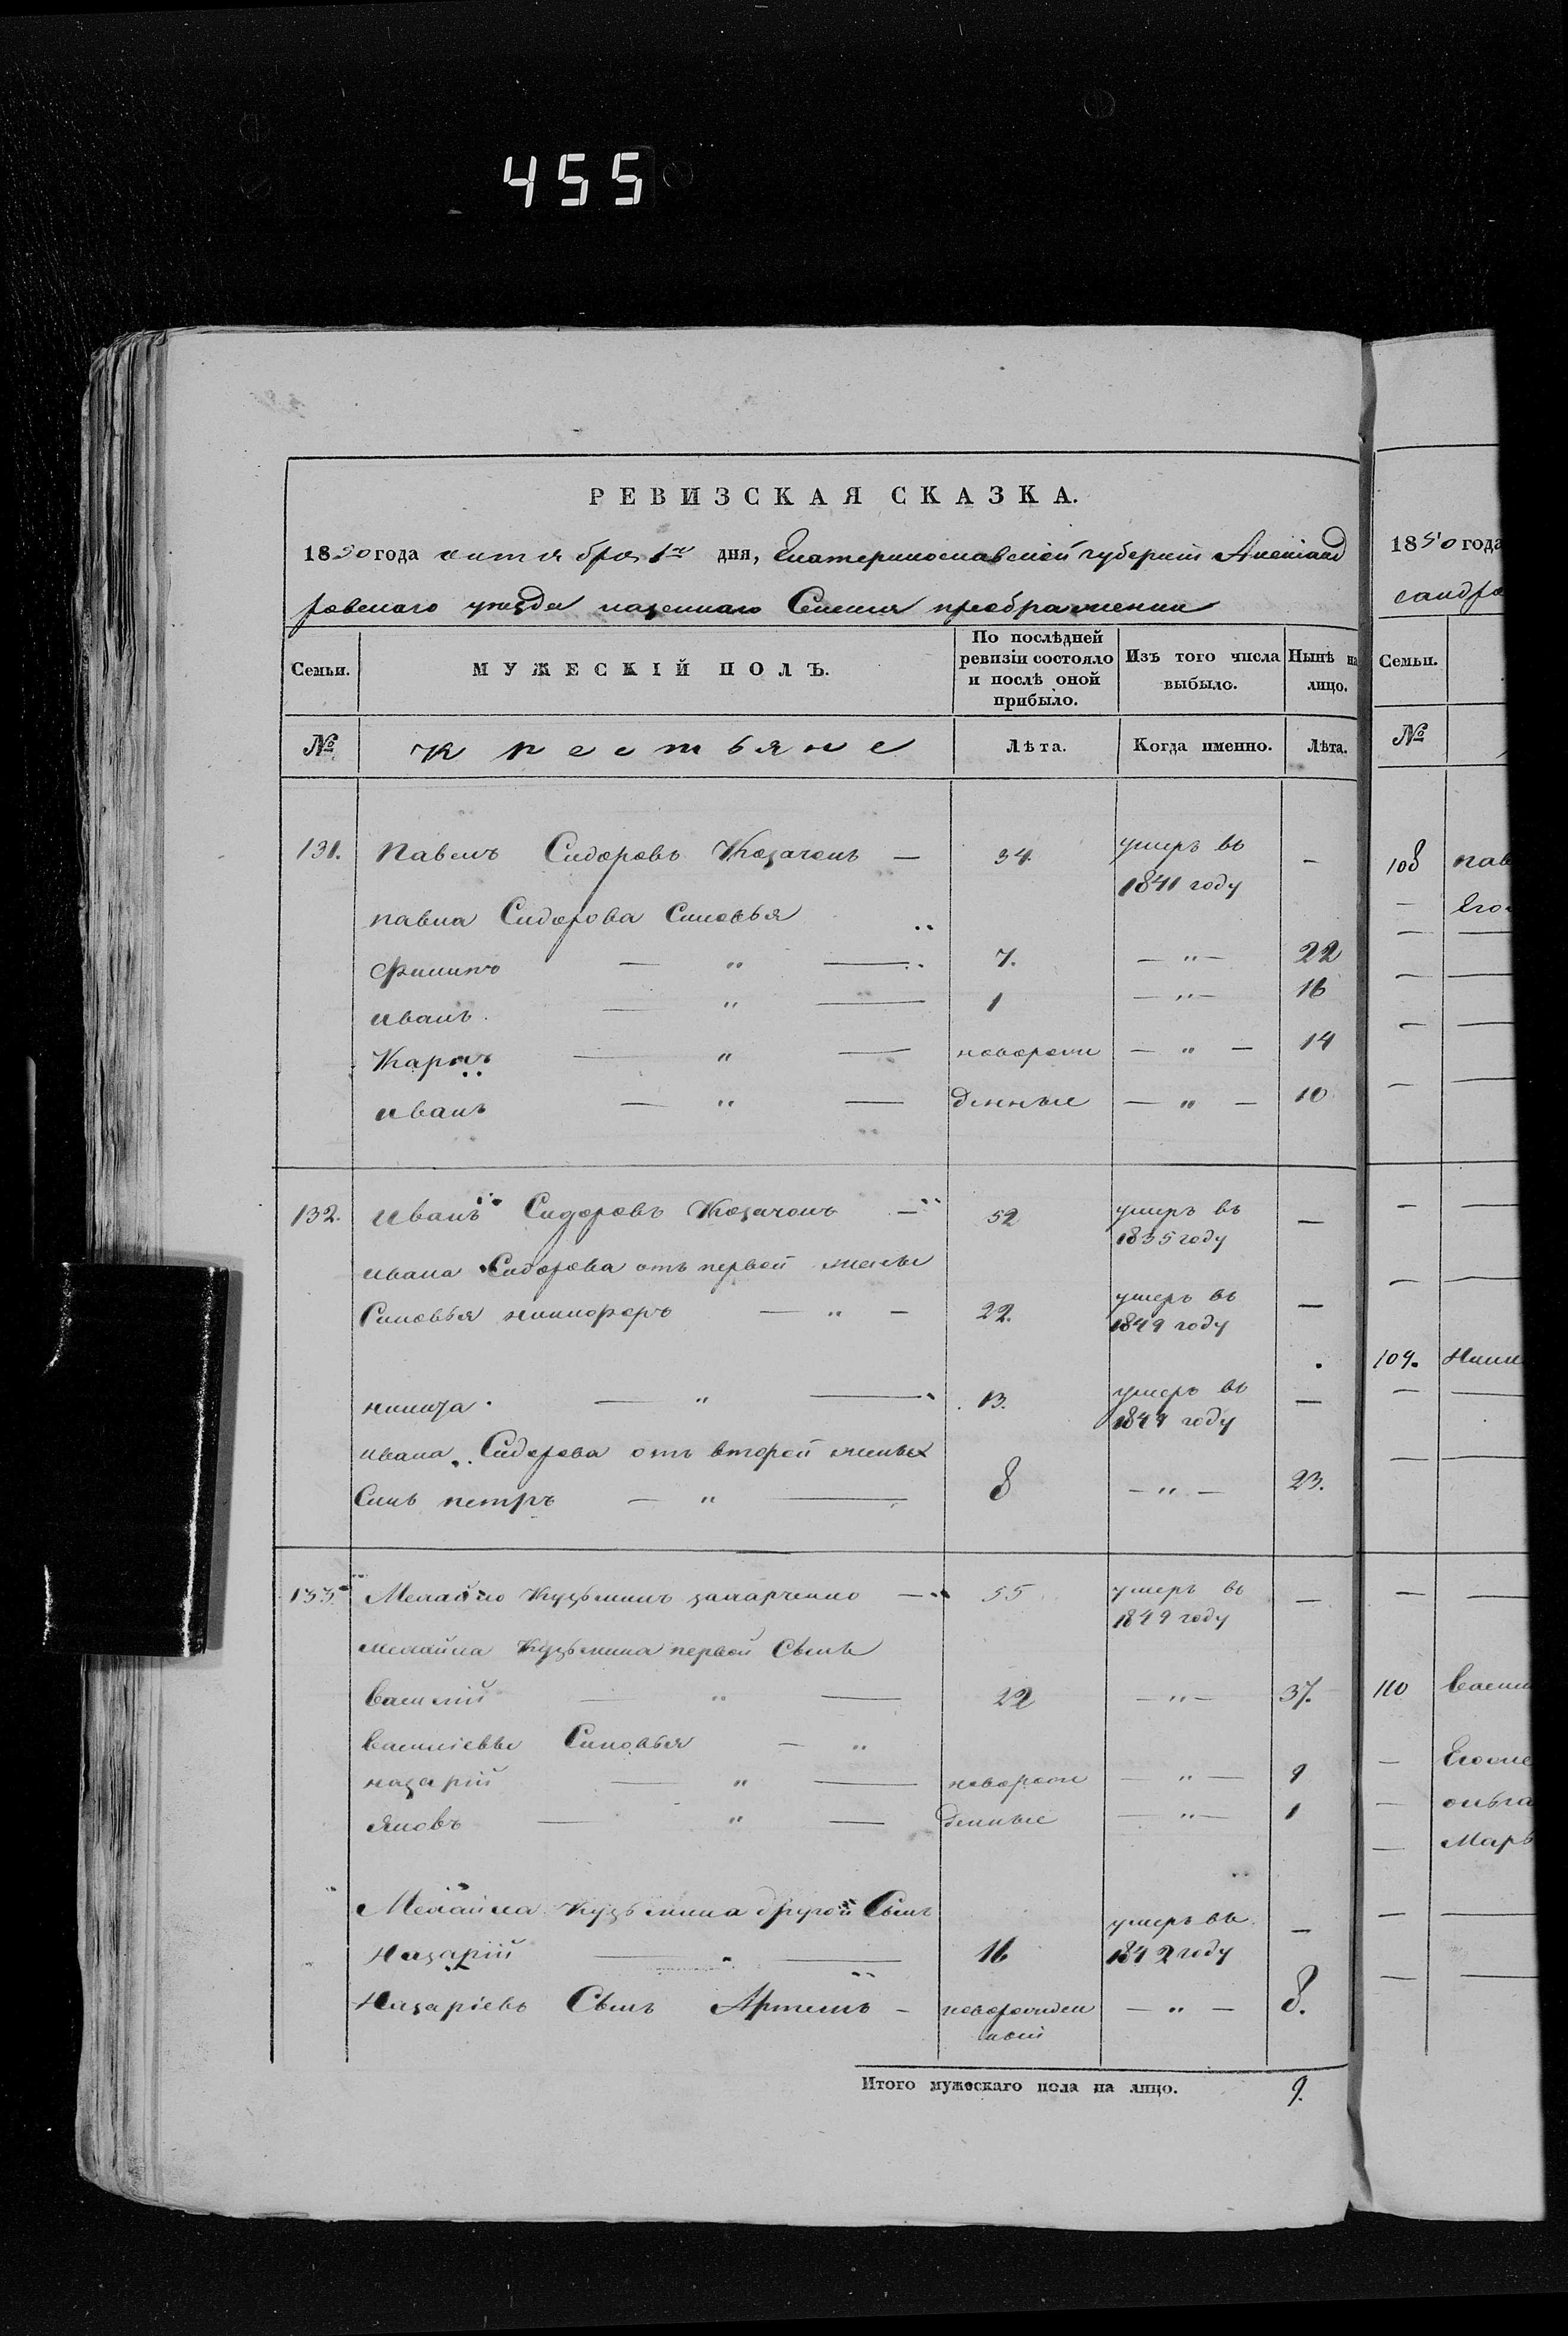 455
РЕВИЗСКАЯ СКАЗКА.
1850 года октября 1го дня, Екатеринославской губернии Александ
ровскаго уезда казеннаго Селения преображенки
Семьи. МУЖЕСКІЙ ПОЛЪ. По послѣдней ревизіи состояло и послѣ оной прибыло. Изъ того числа выбыло. Нынѣ на лицо.
№ крестьяне Лѣта. Когда именно. Лѣта.
131. Павелъ Сидоровъ Козачокъ — 34. умеръ въ 1841 году —
павла Сидорова Синовья
филипъ — " — 7. — " — 22
иванъ. — " — 1 — " — 16
Карпъ — " — новорож — " — 14
иванъ — " — денные — " — 10
132. иванъ Сидоровъ Козачокъ — 52 умеръ въ 1835 году —
ивана Сидорова отъ первой жены
Синовья никифоръ — " — 22. умеръ въ 1849 году —
никита — " — 13. умеръ въ 1844 году —
ивана Сидорова отъ второй жены
Синъ петръ — " — 8 — " — 23.
133. Кузьминъ — 55 умеръ въ 1849 году —
Кузьмина первой Сынъ
василий — " — 22 — " — 37.
василіевы Синовья — "
назарій — " — новорож — " — 9
яковъ — " — денные — " — 1
Кузьмина другой Сынъ
Назарій — " — 16 умеръ въ 1842 году —
Назаріевъ Сынъ Артемъ — новорожден ный — " — 8.
Итого мужескаго пола на лицо. 9.
1850 года
сандро
Семьи.
№
108 пав
109.
110 Васи
ольга
Марь